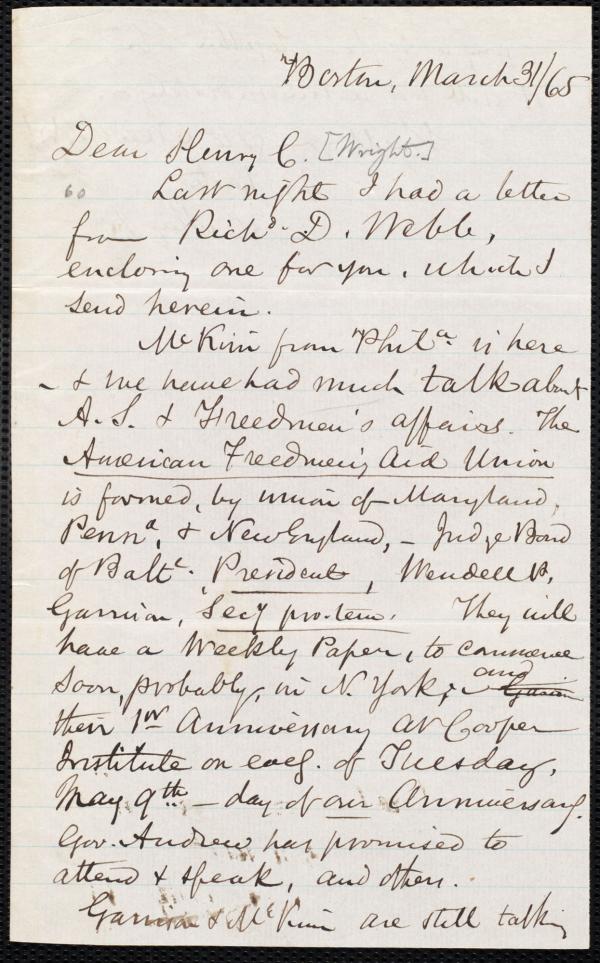 Boston, March 31/65
Dear Henry C. [Wright.]
60 Last night I had a letter
from Richd. D. Webb,
enclosing one for you, which I
send herein.
McKim from Phila. is here
- & we have had much talk about
A.S. & Freedmen's affairs. The
American Freedmen's Aid Union
is formed, by union of Maryland,
Penna, & New England, - Judge Bond
of Balte. President, Wendell P.
Garrison, Secy pro. tem. They will
have a Weekly Paper, to commence
soon, probably, in N. York; and
their 1st Anniversary at Cooper
Institute on eveg. of Tuesday,
May 9th - day of our Anniversary.
Gov. Andrew has promised to
attend & speak, and others.
Garrison & McKim are still talking